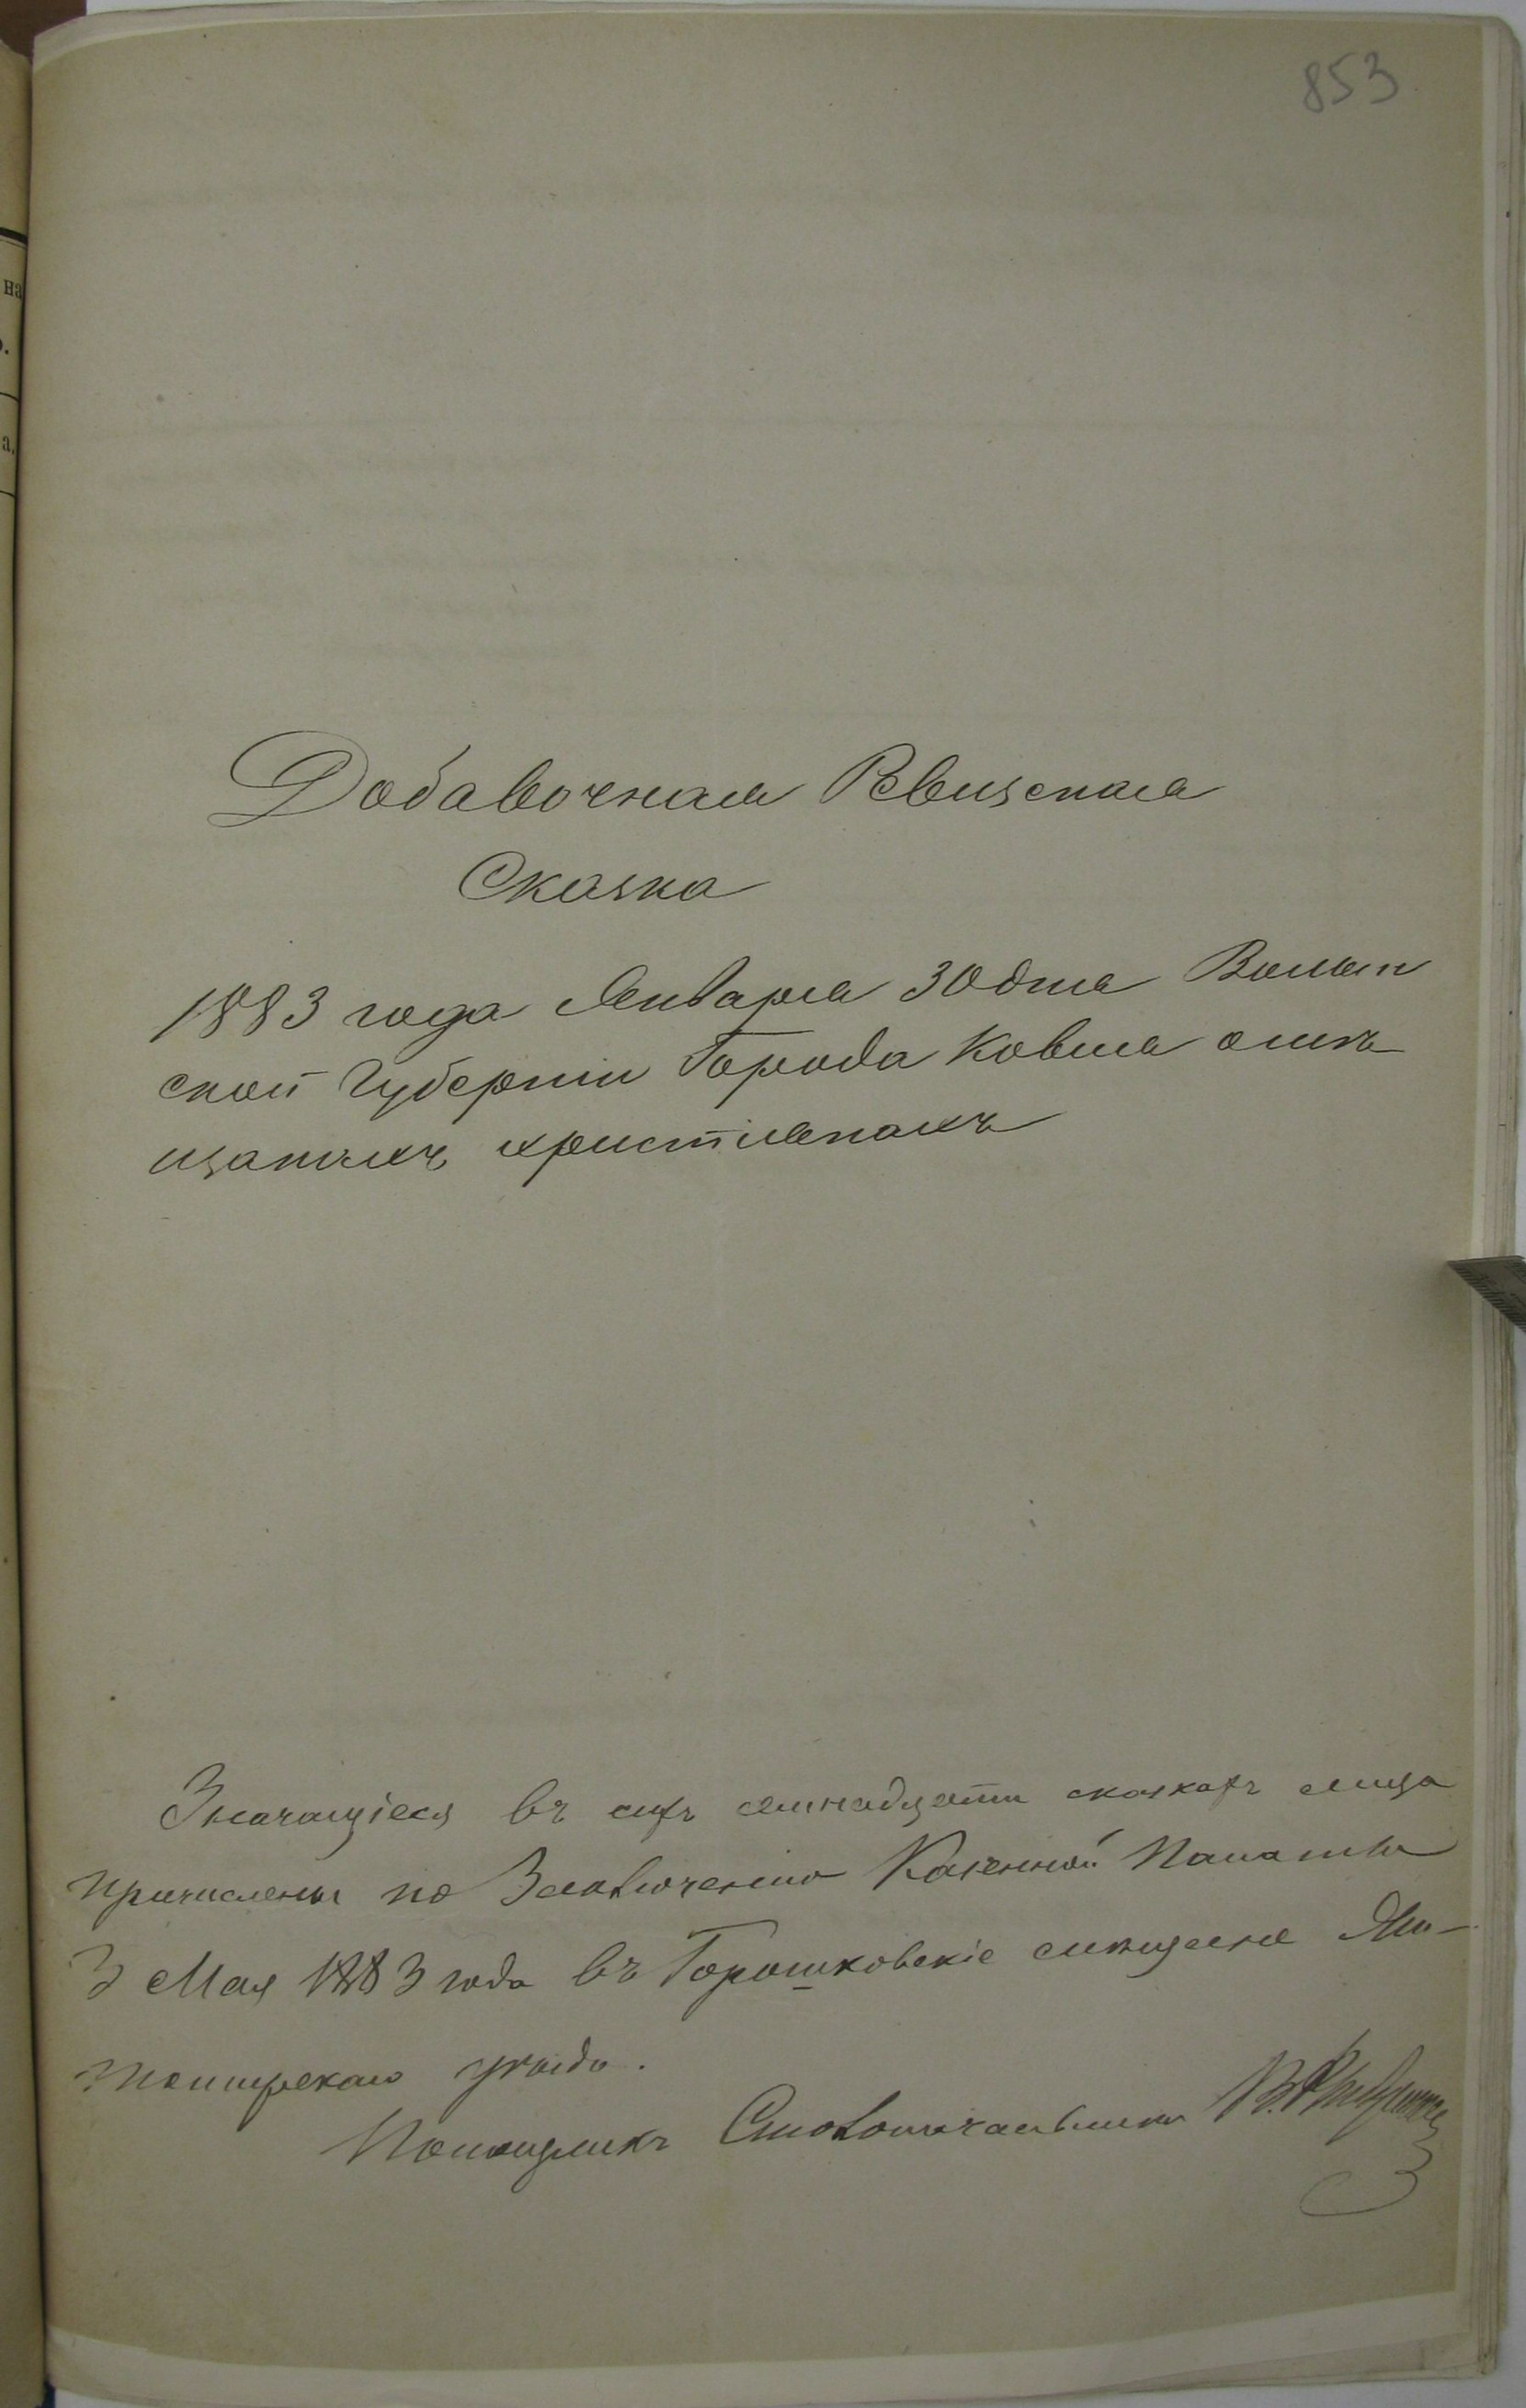 853
Добавочная Ревизская
Сказка
1883 года Января 30 дня Волын
ской Губерніи Города Ковля о мѣ
щанахъ христіянахъ
Значащіеся въ сихъ семнадцати сказкахъ лица
причислены по Заключенію Казенной Палаты
3 Мая 1883 года въ Горошковскіе мѣщане Жи-
томирскаго уѣзда.
Помощникъ Столоначальника
на
а.